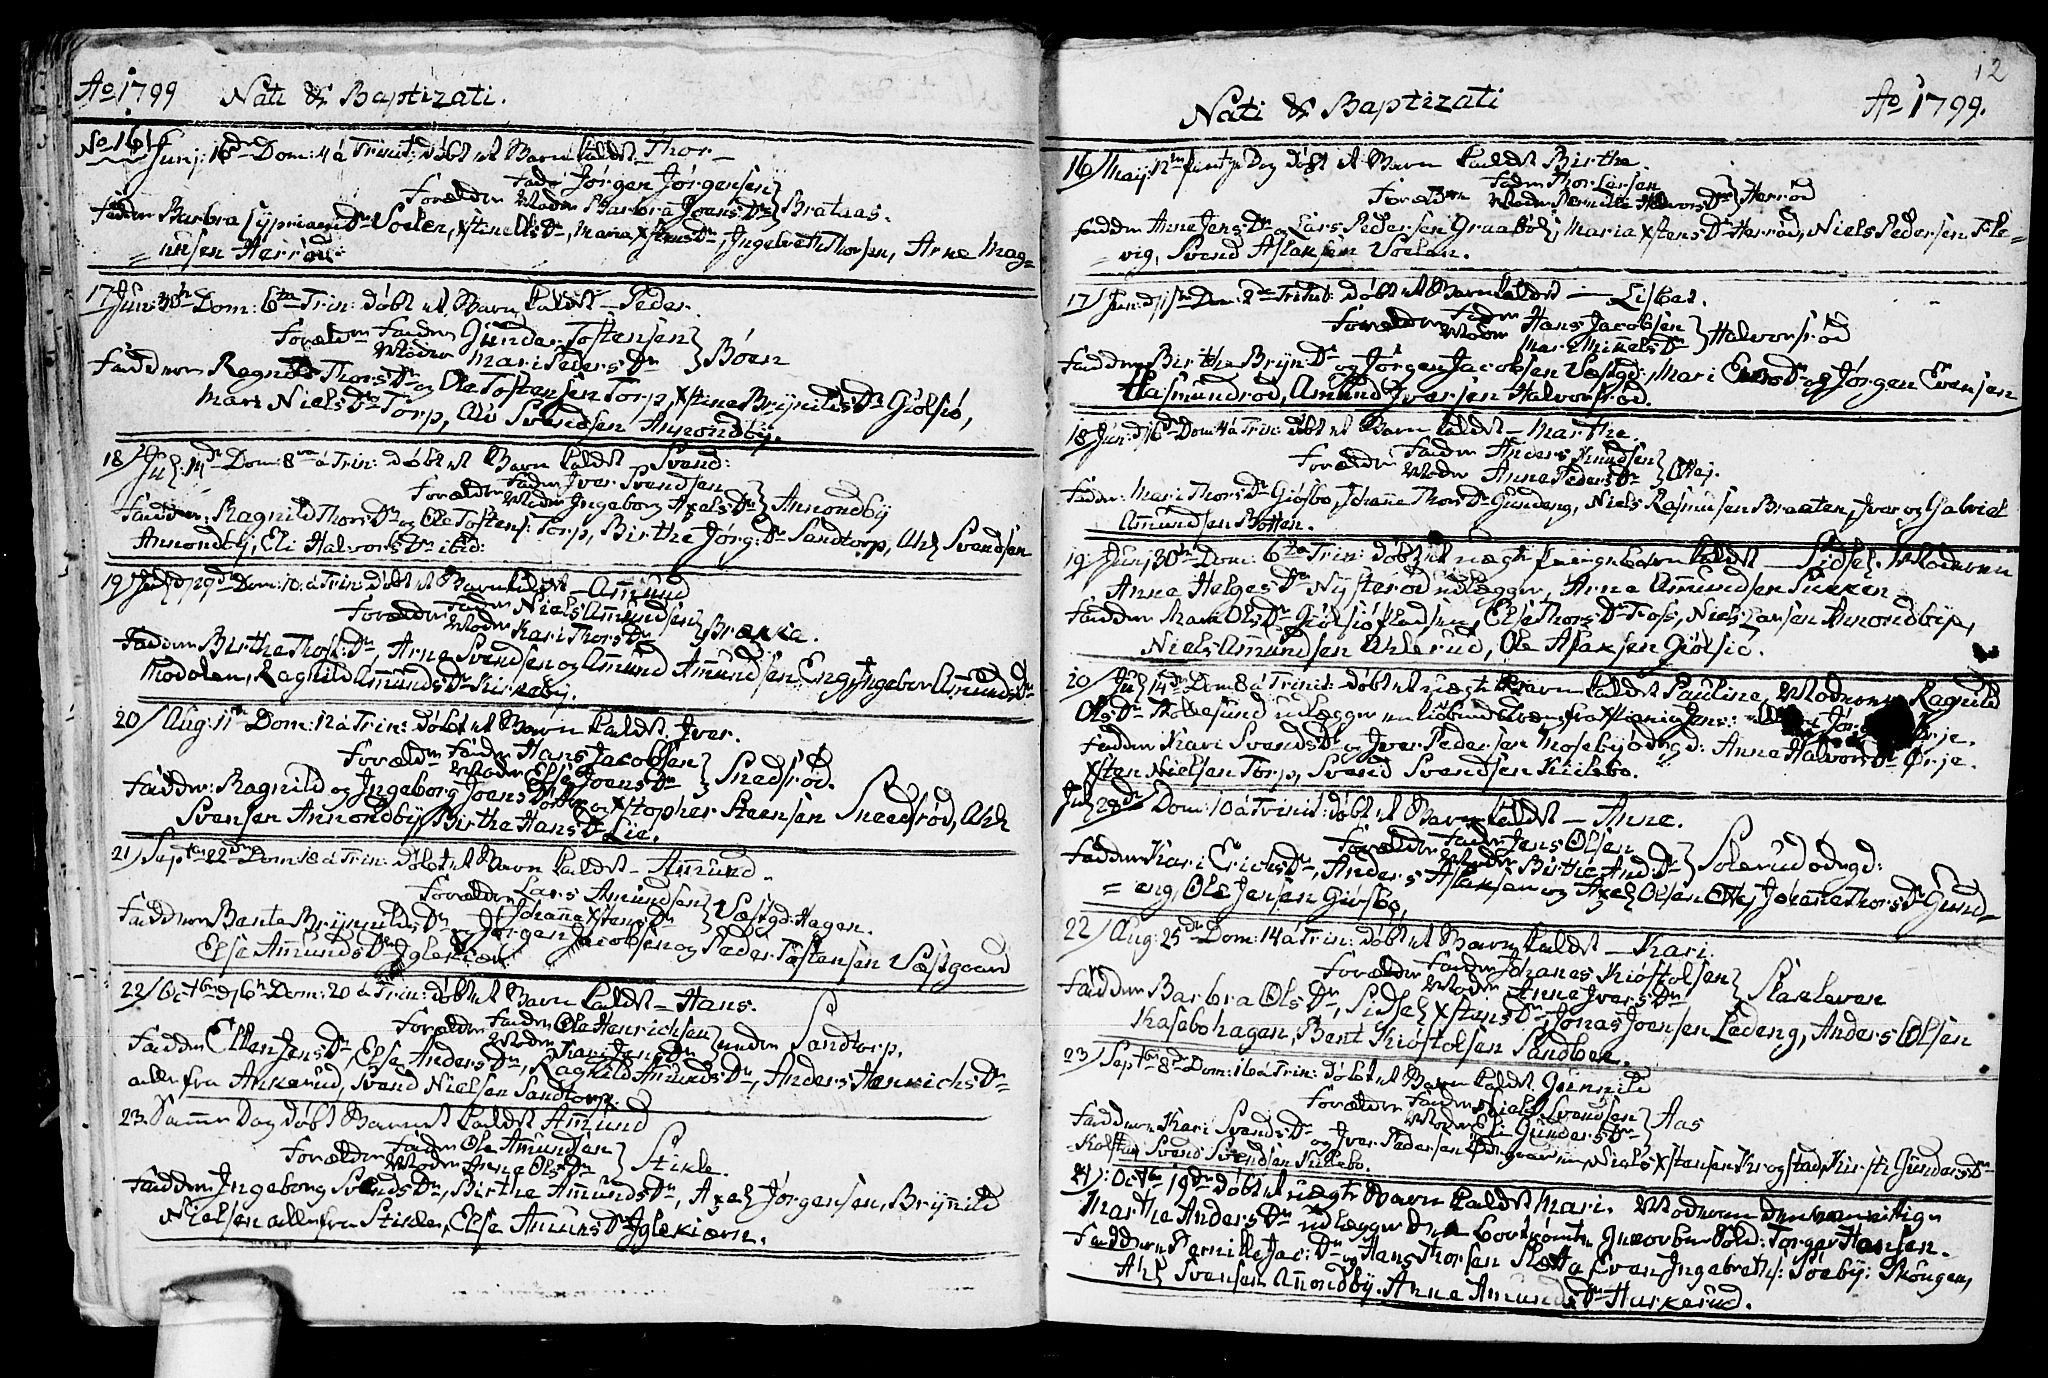 Ao 1799 Nati & Baptizati.
No 16/ Junj: 16de Dom: 4 à Trinit: døbt et Barn kaldet Thor
Forælder Fader Jørgen Jørgensen
Moder Barbra Joens Dr } Brataas.
Faddere Barbra Sypriani Dr Soelen, Xstine Ells Dr, Maria Xstens Dr, Ingebreth Thorsen, Arne Mag=
=nusen Herrød.
17/ Jun: 30te Dom: 6te Trin: døbt et Barn kaldet Peder.
Forældre Faderen Gunder Tostensen
Moder Mari Peders Dr } Bøen
Fadderne Ragnild Thors Dr og Ole Tostensen Torp, Xstine Brynilds Dr Giølsiø,
Mari Niels Dr Torp, Svendsen Annondby.
18/ Jul: 14de Dom: 8ve à Trin: døbt et Barn kaldet Svend:
Forælder Fader Iver Svendsen
Moder Ingeborg Axels Dr } Annondby
Faddere: Ragnild Thors Dr og Ole Tostens: Torp, Birthe Jørg: Dr Sandtorp, Ahl Svendsen
Annondby, Eli Halvors Dr ibid:
19/ Jul: 29de Dom: 10: à Trin: døbt et Barn kaldet Amund
Forælder Fader Niels Amundsen
Moder Kari Thors Dr } Brække.
Fadder Birthe Thost: Dr, Arne Svendsen og Amund Amundsen Eng, Ingebor Amunds Dr
Modolen, Ragnild Amunds Dr Kirkeby.
20/ Aug: 11te Dom: 12 à Trin: døbt et Barn kaldet Iver.
Forældre Fader Hans Jacobsen
Moder Else Joens Dr } Snedsrød.
Fadder: Ragnild og Ingeborg Joens Døttre og Xstopher Steensen Sneedsrød, Ahl
Svensen Annondby, Birthe Hans Dr Lie.
21/ Septbr 22de Dom: 18 à Trin: døbt et Barn kaldet Amund.
Forælder Lars Amundsen
Johanne Xstens Dr } Vestgd: Hagen.
Fadderne Bente Brynnilds Dr og Jørgen Jacobsen og Peder Tostensen Vestgaard
Else Amunds Dr Iglekiær
22/ Octbr d/6te Dom: 20 à Trin: døbt et Barn kaldet Hans.
Forælder Fader Ole Henrichsen
Moder Kari Jens Dr } under Sandtorp.
Fadder Ellen Jens Dr, Else Anders Dr, Ragnild Amunds Dr, Anders Henrichs Dr
alle fra Ankerud, Svend Nielsen Sandtorp.
23. Samme Dag døbt Barnet kaldet Amund
Forælder Fader Ole Amundsen
Moder Anne Ols Dr } Stikle.
Fadder Ingeborg Svends Dr, Birthe Amunds Dr, Axel Jørgensen, Brynild
Nielsen alle fra Stikle, Else Amuns Dr Iglekiærn.
12
Nati & Baptizati Ao 1799.
16/ Maij 12te Dag døbt et Barn kaldet Birthe.
Forældre Fader Thor Larsen
Moder Pernille Halvors Dr } Herrød
Fadder Anne Jens Dr og Lars Pedersen Graabøl, Maria Xstens Dr Herrød, Niels Pedersen Fle=
=vig, Svend Aslaksen Soelan.
17/ Jun: Dom: 2de Trinit: døbt et Barn kaldet Lisbet.
Forælder Fader Hans Jacobsen
Moder Mari Mikkels Dr } Halvorsrød
Fadder Birthe Bryn Dr og Jørgen Jacobsen Vestgd:, Mari Evens Dr og Jørgen Evensen
Hasmundrød, Amund Iversen Halvorsrød.
18/ Jun: d/16de Dom: 4 à Trin: døbt et Barn kaldet Marthe.
Forælder Fader Anders Knudsen
Moder Anne Peders Dr } Ottej.
Fadder: Mari Thors Dr Giøsbø, Johanne Thors Dr Gundeng, Niels Rasmusen Braaten, Iver og Gabriel
Amundsen Botten.
19/ Junj 30te Dom: 6te Trin: døbt et uægte Barn kaldet Sidsel. Moderen
Anne Helges Dr Nysterød udlægger, Arne Amundsen Sukken
Fadder Mari Ols Dr Giølsiøpladsen, Else Thors Dr Foss, Niels Larsen Annondbye,
Niels Amundsen Ahlerud, Ole Aslaksen Giølsiø.
20/ Jul 14de Dom 8 à Trinit: døbt et uægte Barn kaldet Pauline, Moderen Ragnild
Ols Dr Tholkesund udlægger en fra Xstiania Jens: Ørje.
Fadder Kari Svends Dr og Iver Pedersen Mosebyødegd: Anne Halvors Dr Ørje.
Xsten Nielsen Torp, Svend Svendsen Kielebo.
Jul 28de Dom: 10 à Trinit: døbt et Barn kaldet Anne.
Forælder Fader Jens Olsen
Moder Birthe And: Dr } Solerud ødegd:
Fadder Kari Erichs Dr, Anders Aslaksen og Axel Olsen Ottej, Johanne Thors Dr Gund=
=eng, Ole Jensen Giøsbø,
22/ Aug: 25de Dom: 14 à Trin: døbt et Barn kaldet Kari.
Forælder Fader Johanes Kiøstolsen
Moder Anne Ivers Dr } Slakleven
Fadder Barbra Ols Dr, Sidsel Xstens Dr, Jonas Joensen Ledeng, Anders Olsen
Kasebohagen, Bent Kiøstolsen Sandboe.
23/ Septbr 8de Dom: 16 à Trin: døbt et Barn kaldet Gunnild
Forælder Fader Niels Svendsen
Moder Eli Gunders Dr } Aas
Fadderne Kari Svends Dr og Iver Pedersen Niels Xstensen Krogstad, Kirsti Gunders Dr
Svend Svendsen Killebo.
24/: Octbr 19de døbt et uægte Barn kaldet Mari. Moderen
Marthe Anders Dr udlægger Torger Hansen.
Fadderne Pernille Jac: Dr og Hans Thorsen Slette, Even Ingebreths: Soeby: Skougen,
Ahl Svensen Annondby. Anne Amunds Dr Hurkerud.